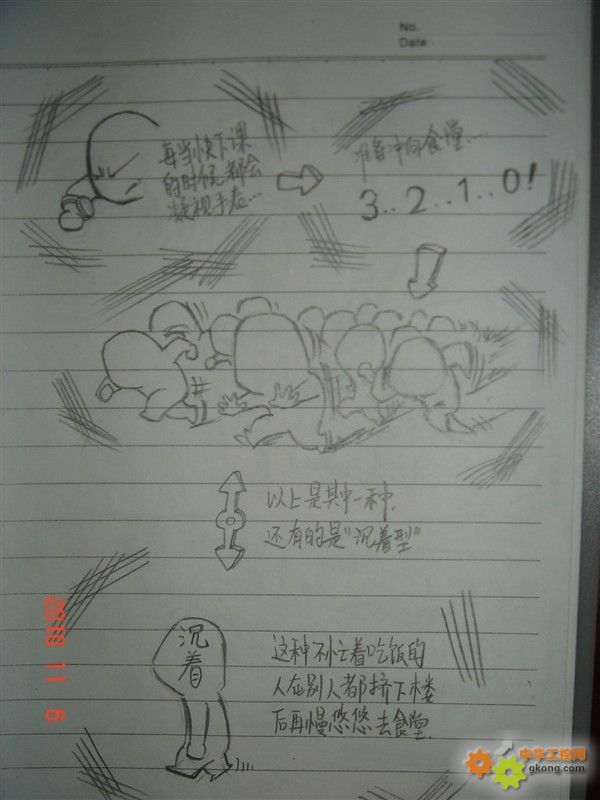 No.
Date
每当快下课
的时候,都会
凝视手表…
准备冲向食堂....
3..2..1..0!
以上是其中一种,
还有的是“沉着型”
沉着
这种不忙着吃饭的
人在别人都挤下楼
后再慢悠悠去食堂.
2010 11 6
中华工控网
gkong.com